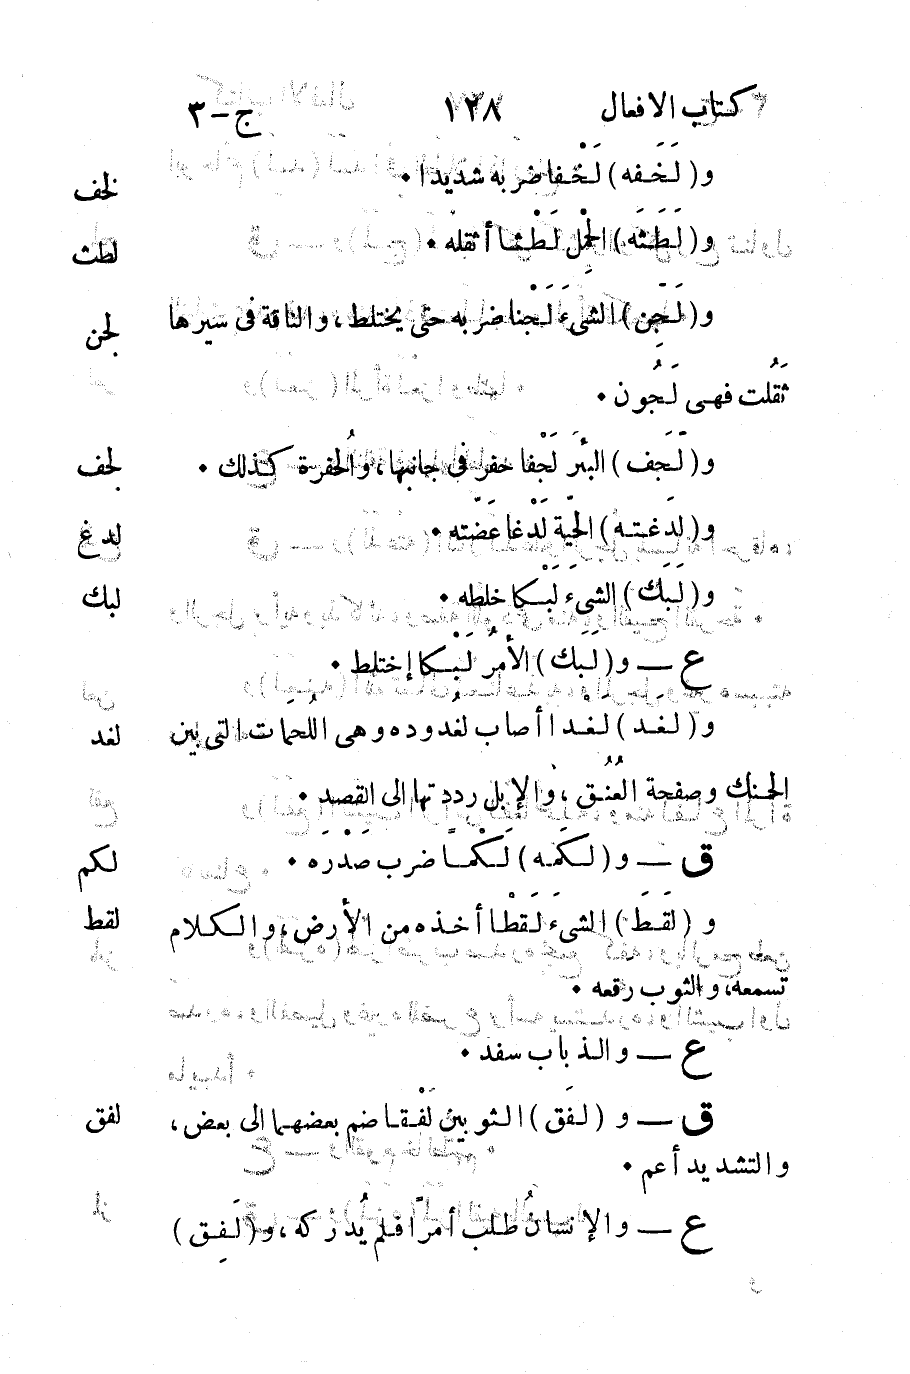 كتاب الافعال ١٢٨ ج-٣
و(لَخَفه) لَخْفا ضربه شديدا • لخف
و(لَطَثَه) الحِمْل لَطْثا أثقله • لطث
و(لَجِّن) الشىءَ لَجْنا ضربه حتى يختلط، والناقة فى سيرها لجن
ثَقُلت فهى لَجُون •
و(لَجّف) البئرَ لَجْفا حفر فى جانبها، والحُفرة كذلك • لجف
و(لدَغتْه) الحيّة لَدْغا عَضّته • لدغ
و(لَبَك) الشىءَ لَبْكا خلطه • لبك
ع — و(لَبَِك) الأمرُ لَبْكا إختلط •
و(لَغَد) لَغْدا أصاب لُغدوده وهى اللُحمات التى بين لغد
الحنك وصفحة العُنُق، والإبل رددتها الى القَصد •
ق — و(لكَمه) لَكْماً ضرب صَدْرَه • لكم
و (لقَطَ) الشىءَ لَقْطا أخذه من الأرض، والكلام لقط
تسمعه، والثوب رقعه •
ع — والذباب سفد •
ق — و (لفَق) الثوبين لَفْقا ضم بعضهما الى بعض، لفق
والتشديد أعم •
ع — والإنسانُ طلب أمرًا فلم يُدركه، و(لَفِق)